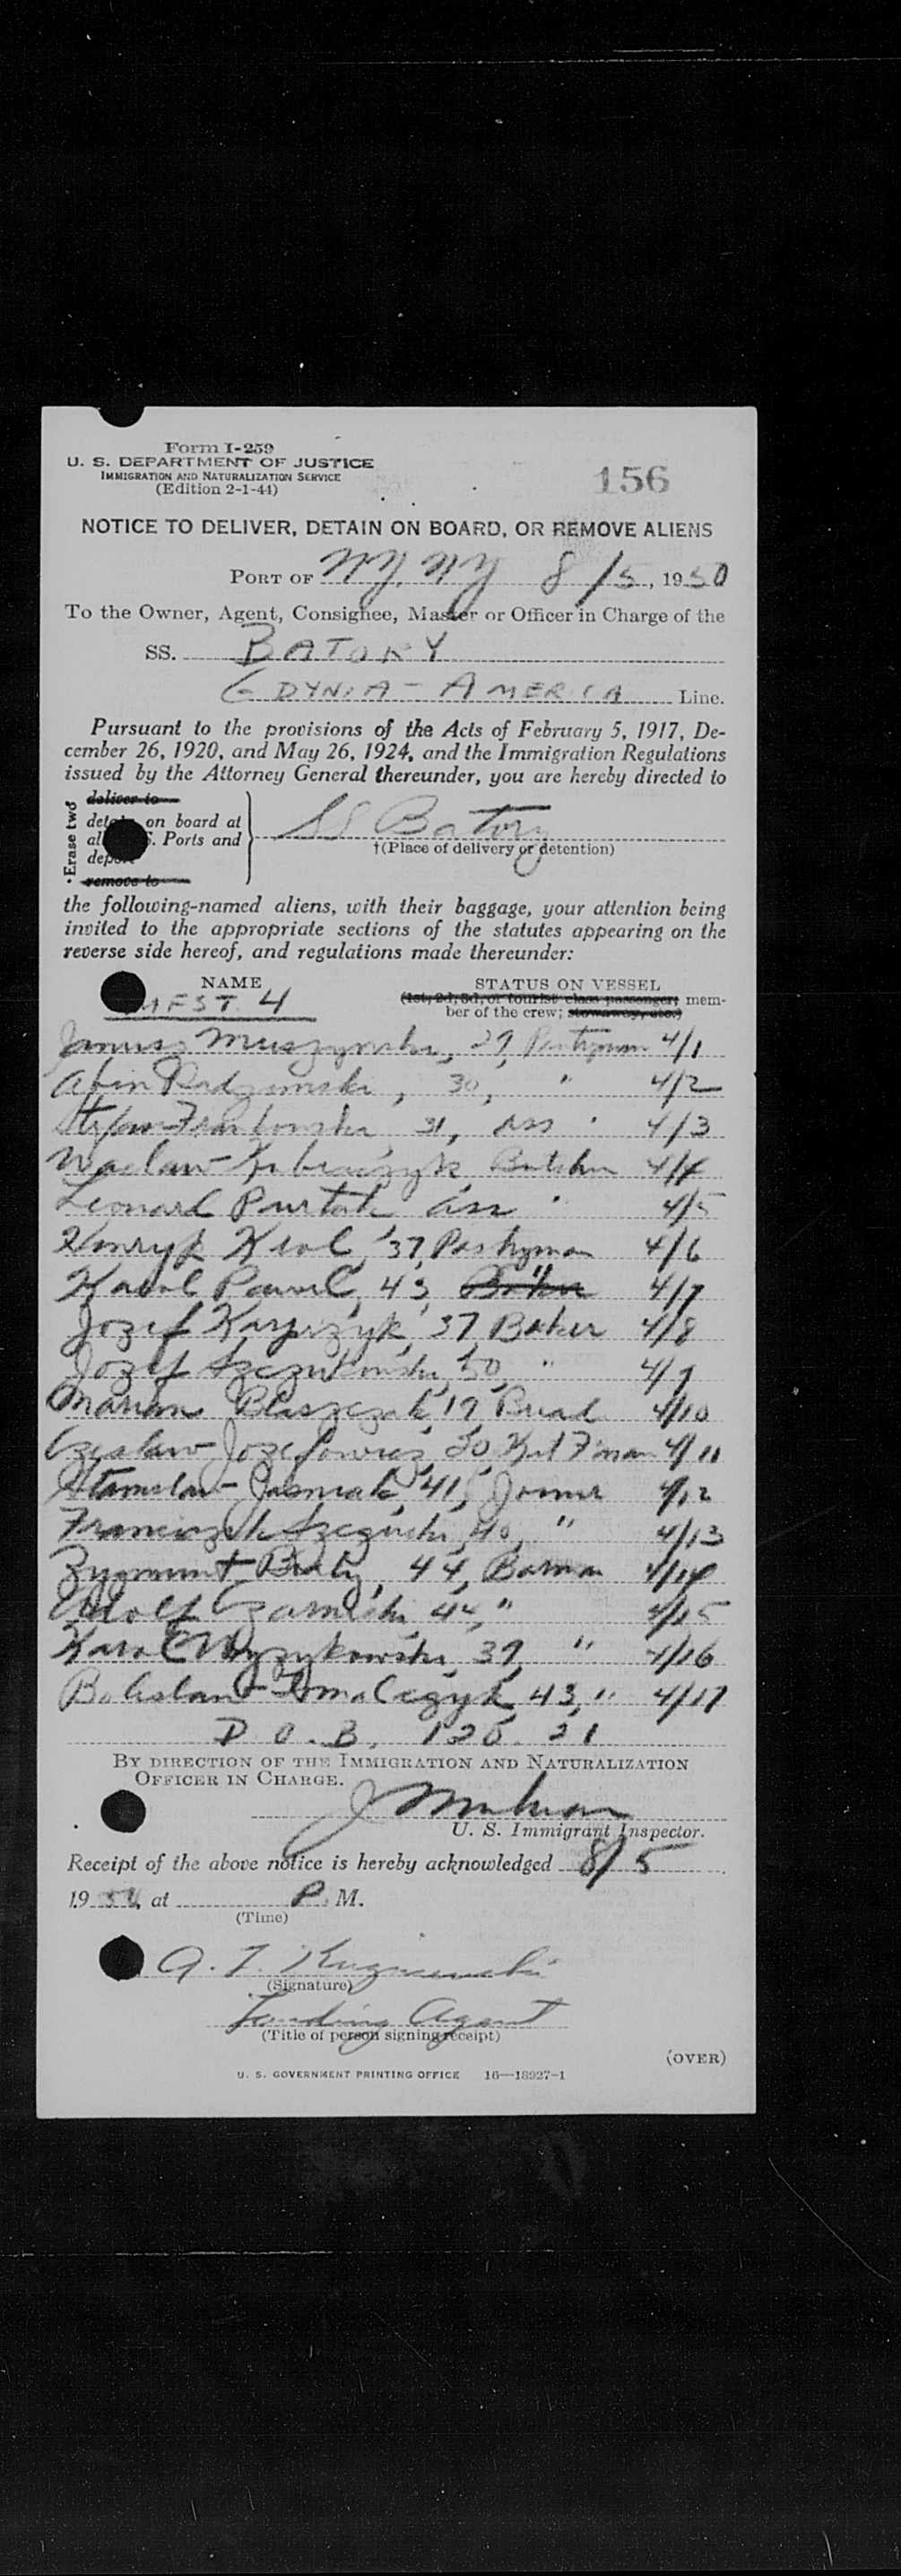 Form I-259
U. S. DEPARTMENT OF JUSTICE
IMMIGRATION AND NATURALIZATION SERVICE
(Edition 2-1-44)
156
NOTICE TO DELIVER, DETAIN ON BOARD, OR REMOVE ALIENS
PORT OF NY. NY 8/5, 1950
To the Owner, Agent, Consignee, Master or Officer in Charge of the
SS. BATORY
GDYNIA - AMERICA Line.
Pursuant to the provisions of the Acts of February 5, 1917, De-
cember 26, 1920, and May 26, 1924, and the Immigration Regulations
issued by the Attorney General thereunder, you are hereby directed to
* Erase two
deliver to
on board at
Ports and
remove to
SS Batory
†(Place of delivery or detention)
the following-named aliens, with their baggage, your attention being
invited to the appropriate sections of the statutes appearing on the
reverse side hereof, and regulations made thereunder:
NAME STATUS ON VESSEL
(1st, 2d, 3d, or tourist class passenger; mem-
ber of the crew; stowaway, etc.)
MFST 4
Janusz Muszynski, 29, Pantryman 4/1
Radzimski, 30, " 4/2
Stefan 31, ass " 4/3
Waclaw Butcher 4/4
Leonard Purtak ass " 4/5
Henryk Krol, 37, Pastryman 4/6
Karol Pawel, 43, " 4/7
Jozef 37 Baker 4/8
Jozef Szczutkowski, 50, " 4/9
Marian Blaszczak, 19 4/10
Czeslaw Jozefowicz, 4/11
Stanislaw Jasniak, 41, Joiner 4/12
Franciszek 40, " 4/13
Zygmunt 44, Barman 4/14
Adolf Czarnicki, 44, " 4/15
Karol Wyzykowski, 39, " 4/16
Boleslaw Tomalczyk 43, " 4/17
D. O. B. 120.21
BY DIRECTION OF THE IMMIGRATION AND NATURALIZATION
OFFICER IN CHARGE.
U. S. Immigrant Inspector.
Receipt of the above notice is hereby acknowledged 8/5
19 at P. M.
(Time)
A. T.
(Signature)
Landing Agent
(Title of person signing receipt)
(OVER)
U. S. GOVERNMENT PRINTING OFFICE 16—18927-1